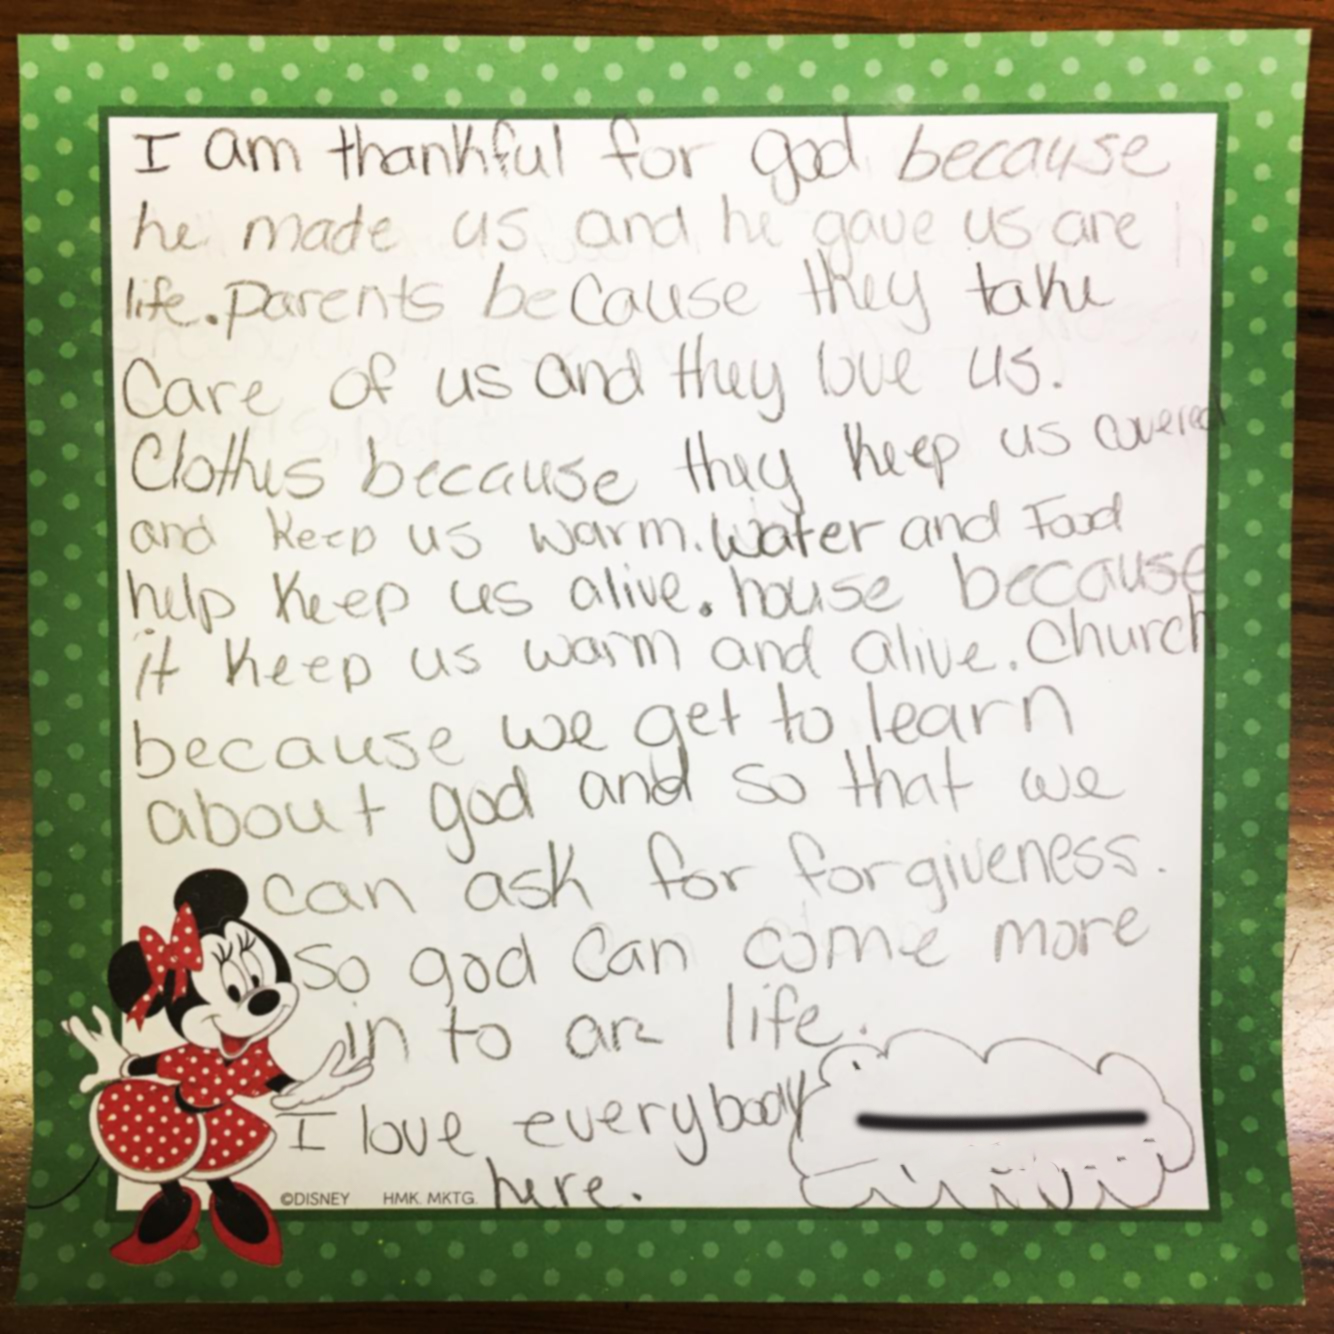 I am thankful for god because
he made us and he gave us are
life. parents because they take
Care of us and they love us.
Clothes because they keep us covered
and keep us warm. Water and Food
help keep us alive. house because
it keep us warm and alive. Church
because we get to learn
about god and so that we
can ask for forgiveness.
So god can come more
in to are life.
I love everybody
here.
©DISNEY HMK. MKTG.